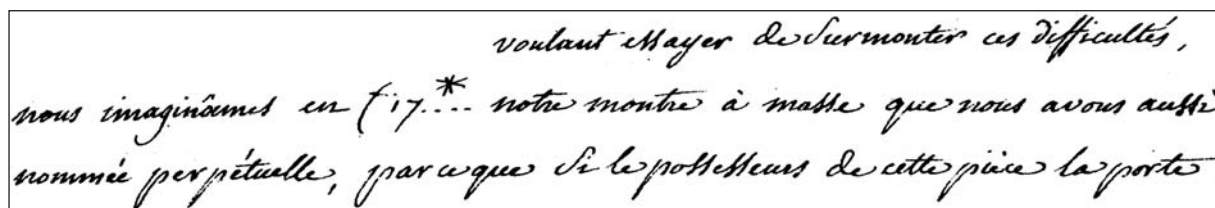 voulant essayer de surmonter ces difficultés,
nous imaginâmes en (17....* notre montre à masse que nous avons aussi
nommée perpétuelle, parceque si le possesseurs de cette pièce la porte